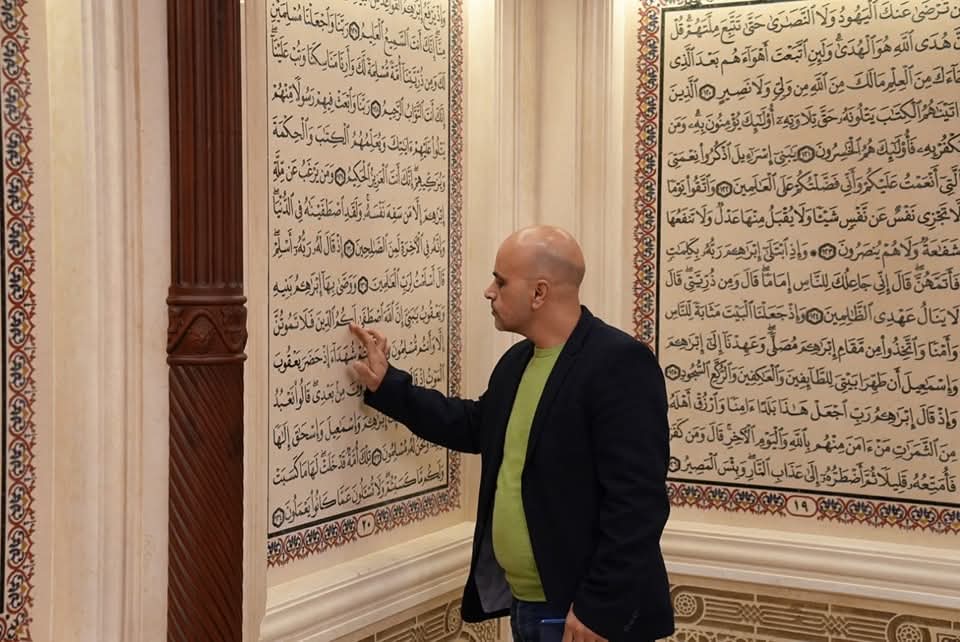 تَرْضَىٰ عَنكَ ٱلْيَهُودُ وَلَا ٱلنَّصَٰرَىٰ حَتَّىٰ تَتَّبِعَ مِلَّتَهُمْ ۗ قُلْ
هُدَى ٱللَّهِ هُوَ ٱلْهُدَىٰ ۗ وَلَئِنِ ٱتَّبَعْتَ أَهْوَآءَهُم بَعْدَ ٱلَّذِى
جَآءَكَ مِنَ ٱلْعِلْمِ ۙ مَا لَكَ مِنَ ٱللَّهِ مِن وَلِىٍّ وَلَا نَصِيرٍ ١٢٠ ٱلَّذِينَ
ءَاتَيْنَٰهُمُ ٱلْكِتَٰبَ يَتْلُونَهُۥ حَقَّ تِلَاوَتِهِۦٓ أُو۟لَٰٓئِكَ يُؤْمِنُونَ بِهِۦ ۗ وَمَن
يَكْفُرْ بِهِۦ فَأُو۟لَٰٓئِكَ هُمُ ٱلْخَٰسِرُونَ ١٢١ يَٰبَنِىٓ إِسْرَٰٓءِيلَ ٱذْكُرُوا۟ نِعْمَتِىَ
ٱلَّتِىٓ أَنْعَمْتُ عَلَيْكُمْ وَأَنِّى فَضَّلْتُكُمْ عَلَى ٱلْعَٰلَمِينَ ١٢٢ وَٱتَّقُوا۟ يَوْمًا
لَّا تَجْزِى نَفْسٌ عَن نَّفْسٍ شَيْـًٔا وَلَا يُقْبَلُ مِنْهَا عَدْلٌ وَلَا تَنفَعُهَا
شَفَٰعَةٌ وَلَا هُمْ يُنصَرُونَ ١٢٣ وَإِذِ ٱبْتَلَىٰٓ إِبْرَٰهِۦمَ رَبُّهُۥ بِكَلِمَٰتٍ
فَأَتَمَّهُنَّ ۖ قَالَ إِنِّى جَاعِلُكَ لِلنَّاسِ إِمَامًا ۖ قَالَ وَمِن ذُرِّيَّتِى ۖ قَالَ
لَا يَنَالُ عَهْدِى ٱلظَّٰلِمِينَ ١٢٤ وَإِذْ جَعَلْنَا ٱلْبَيْتَ مَثَابَةً لِّلنَّاسِ
وَأَمْنًا وَٱتَّخِذُوا۟ مِن مَّقَامِ إِبْرَٰهِۦمَ مُصَلًّى ۖ وَعَهِدْنَآ إِلَىٰٓ إِبْرَٰهِۦمَ
وَإِسْمَٰعِيلَ أَن طَهِّرَا بَيْتِىَ لِلطَّآئِفِينَ وَٱلْعَٰكِفِينَ وَٱلرُّكَّعِ ٱلسُّجُودِ ١٢٥
وَإِذْ قَالَ إِبْرَٰهِۦمُ رَبِّ ٱجْعَلْ هَٰذَا بَلَدًا ءَامِنًا وَٱرْزُقْ أَهْلَهُۥ
مِنَ ٱلثَّمَرَٰتِ مَنْ ءَامَنَ مِنْهُم بِٱللَّهِ وَٱلْيَوْمِ ٱلْءَاخِرِ ۖ قَالَ وَمَن كَفَرَ
فَأُمَتِّعُهُۥ قَلِيلًا ثُمَّ أَضْطَرُّهُۥٓ إِلَىٰ عَذَابِ ٱلنَّارِ ۖ وَبِئْسَ ٱلْمَصِيرُ ١٢٦
١٩
وَإِذْ يَرْفَعُ إِبْرَٰهِۦمُ ٱلْقَوَاعِدَ مِنَ
مِنَّآ ۖ إِنَّكَ أَنتَ ٱلسَّمِيعُ ٱلْعَلِيمُ ١٢٧ رَبَّنَا وَٱجْعَلْنَا مُسْلِمَيْنِ
لَكَ وَمِن ذُرِّيَّتِنَآ أُمَّةً مُّسْلِمَةً لَّكَ وَأَرِنَا مَنَاسِكَنَا وَتُبْ عَلَيْنَآ ۖ
إِنَّكَ أَنتَ ٱلتَّوَّابُ ٱلرَّحِيمُ ١٢٨ رَبَّنَا وَٱبْعَثْ فِيهِمْ رَسُولًا مِّنْهُمْ
يَتْلُوا۟ عَلَيْهِمْ ءَايَٰتِكَ وَيُعَلِّمُهُمُ ٱلْكِتَٰبَ وَٱلْحِكْمَةَ
وَيُزَكِّيهِمْ ۚ إِنَّكَ أَنتَ ٱلْعَزِيزُ ٱلْحَكِيمُ ١٢٩ وَمَن يَرْغَبُ عَن مِّلَّةِ
إِبْرَٰهِۦمَ إِلَّا مَن سَفِهَ نَفْسَهُۥ ۚ وَلَقَدِ ٱصْطَفَيْنَٰهُ فِى ٱلدُّنْيَا ۖ
وَإِنَّهُۥ فِى ٱلْءَاخِرَةِ لَمِنَ ٱلصَّٰلِحِينَ ١٣٠ إِذْ قَالَ لَهُۥ رَبُّهُۥٓ أَسْلِمْ ۖ
قَالَ أَسْلَمْتُ لِرَبِّ ٱلْعَٰلَمِينَ ١٣١ وَوَصَّىٰ بِهَآ إِبْرَٰهِۦمُ بَنِيهِ
وَيَعْقُوبُ يَٰبَنِىَّ إِنَّ ٱللَّهَ ٱصْطَفَىٰ لَكُمُ ٱلدِّينَ فَلَا تَمُوتُنَّ
إِلَّا وَأَنتُم مُّسْلِمُونَ شُهَدَآءَ إِذْ حَضَرَ يَعْقُوبَ
ٱلْمَوْتُ إِذْ مِنۢ بَعْدِى قَالُوا۟ نَعْبُدُ
إِبْرَٰهِۦمَ وَإِسْمَٰعِيلَ وَإِسْحَٰقَ إِلَٰهًا
وَنَحْنُ لَهُۥ مُسْلِمُونَ ١٣٣ تِلْكَ أُمَّةٌ قَدْ خَلَتْ ۖ لَهَا مَا كَسَبَتْ
وَلَكُم مَّا كَسَبْتُمْ ۖ وَلَا تُسْـَٔلُونَ عَمَّا كَانُوا۟ يَعْمَلُونَ ١٣٤
٢٠